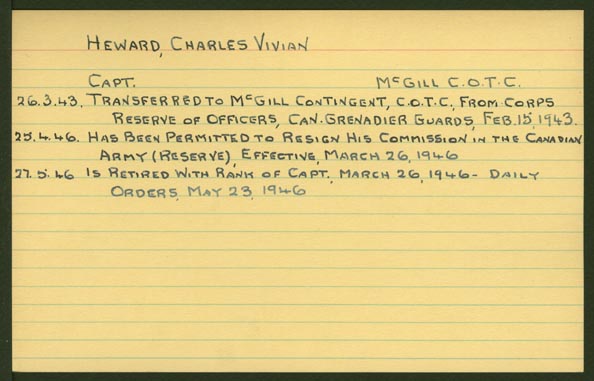 HEWARD, CHARLES VIVIAN
CAPT. McGILL C.O.T.C.
26.3.43. TRANSFERRED TO McGILL CONTINGENT, C.O.T.C., FROM CORPS
RESERVE OF OFFICERS, CAN. GRENADIER GUARDS, FEB. 15, 1943.
25.4.46. HAS BEEN PERMITTED TO RESIGN HIS COMMISSION IN THE CANADIAN
ARMY (RESERVE), EFFECTIVE, MARCH 26, 1946
27.5.46 IS RETIRED WITH RANK OF CAPT., MARCH 26, 1946 - DAILY
ORDERS, MAY 23, 1946